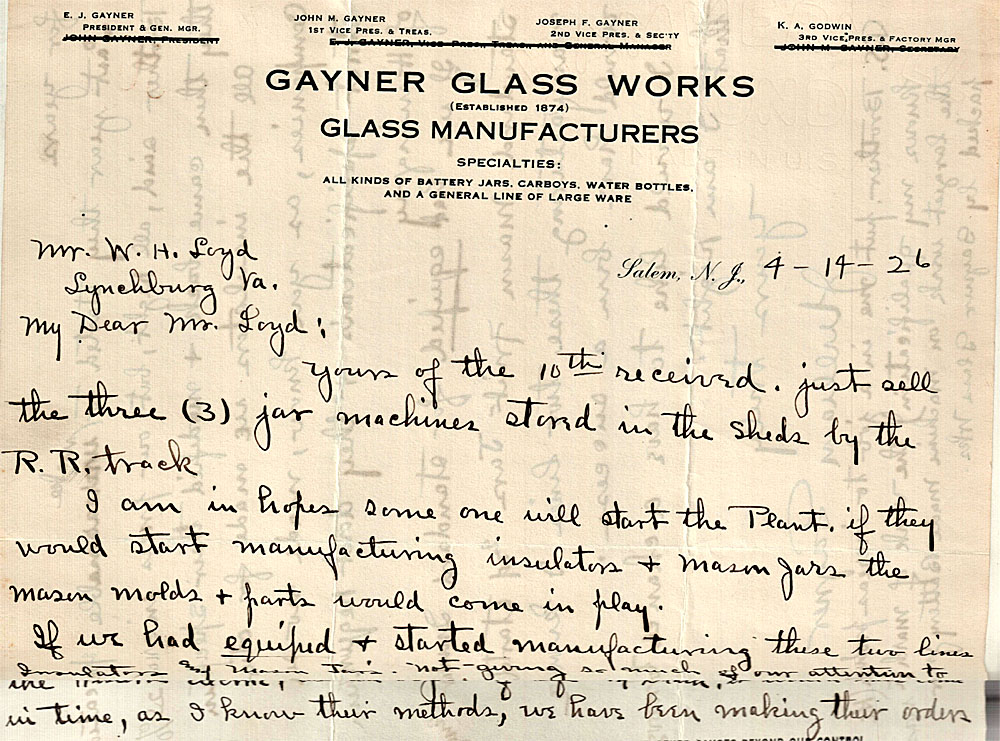 E. J. GAYNER
PRESIDENT & GEN. MGR.
JOHN GAYNER, PRESIDENT
JOHN M. GAYNER
1ST VICE PRES. & TREAS.
E. J. GAYNER, VICE PRES., TREAS. AND GENERAL MANAGER
JOSEPH F. GAYNER
2ND VICE PRES. & SEC'TY
K. A. GODWIN
3RD VICE PRES. & FACTORY MGR
JOHN M. GAYNER, SECRETARY
GAYNER GLASS WORKS
(ESTABLISHED 1874)
GLASS MANUFACTURERS
SPECIALTIES:
ALL KINDS OF BATTERY JARS, CARBOYS, WATER BOTTLES,
AND A GENERAL LINE OF LARGE WARE
Mr. W. H. Loyd
Salem, N. J., 4 - 14 - 26
Lynchburg Va.
My Dear Mr. Loyd:
Yours of the 10th received. just sell
the three (3) jar machines stored in the sheds by the
R. R. track
I am in hopes some one will start the Plant. if they
would start manufacturing insulators + mason Jars the
mason molds + parts would come in play.
If we had equiped + started manufacturing these two lines
Insulators Mason Jars. not giving so much of our attention to
in time, as I know their methods, we have been making their orders